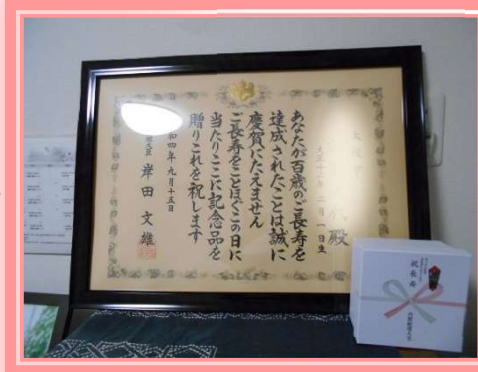 殿
二月一日生
あなたが百歳のご長寿を
達成されたことは誠に
慶賀にたえません
ご長寿をことほぐこの日に
当たりここに記念品を
贈りこれを祝します
和四年九月十五日
大臣 岸田 文雄
祝長寿
内閣総理大臣